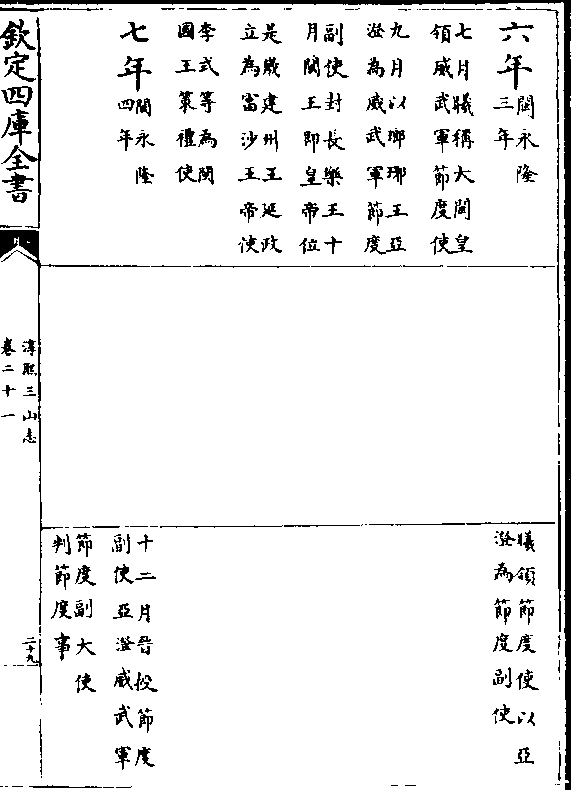 六年
閩永隆
三年
七月曦稱大閩皇
領威武軍節度使
九月以瑯琊王亞
澄為威武軍節度
副使封長樂王十
月閩王即皇帝位
是歲建州王延政
立為富沙王帝使
李式等為閩
國王策禮使
七年
閩永隆
四年
曦領節度使以亞
澄為節度副使
十二月晉授節度
副使亞澄威武軍
節度副大使
判節度事
欽定四庫全書
淳熙三山志
卷二十一
二十九